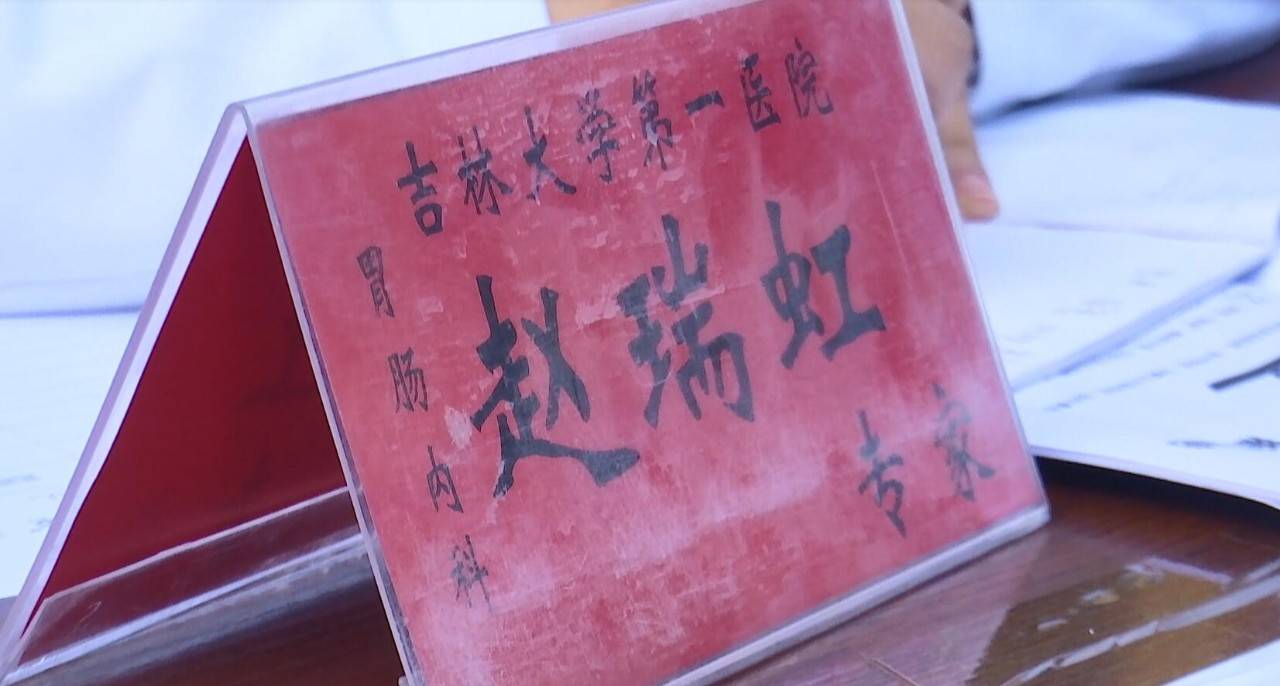 吉林大学第一医院
胃肠内科
赵瑞虹
专家